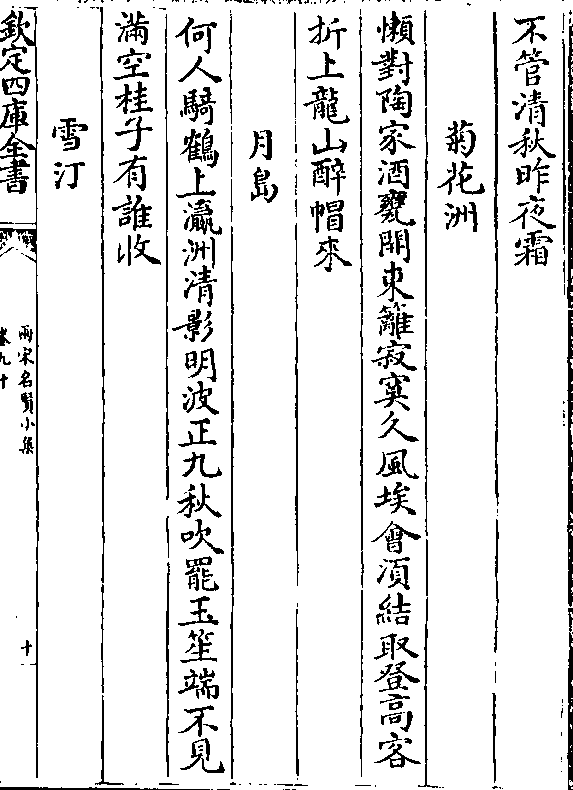 不管清秋昨夜霜
菊花洲
懶對陶家酒甕開東籬寂寞久風埃會須結取登高客
折上龍山醉帽來
月島
何人騎鶴上瀛洲清影明波正九秋吹罷玉笙端不見
滿空桂子有誰收
雪汀
欽定四庫全書
兩宋名賢小集
卷九十
十